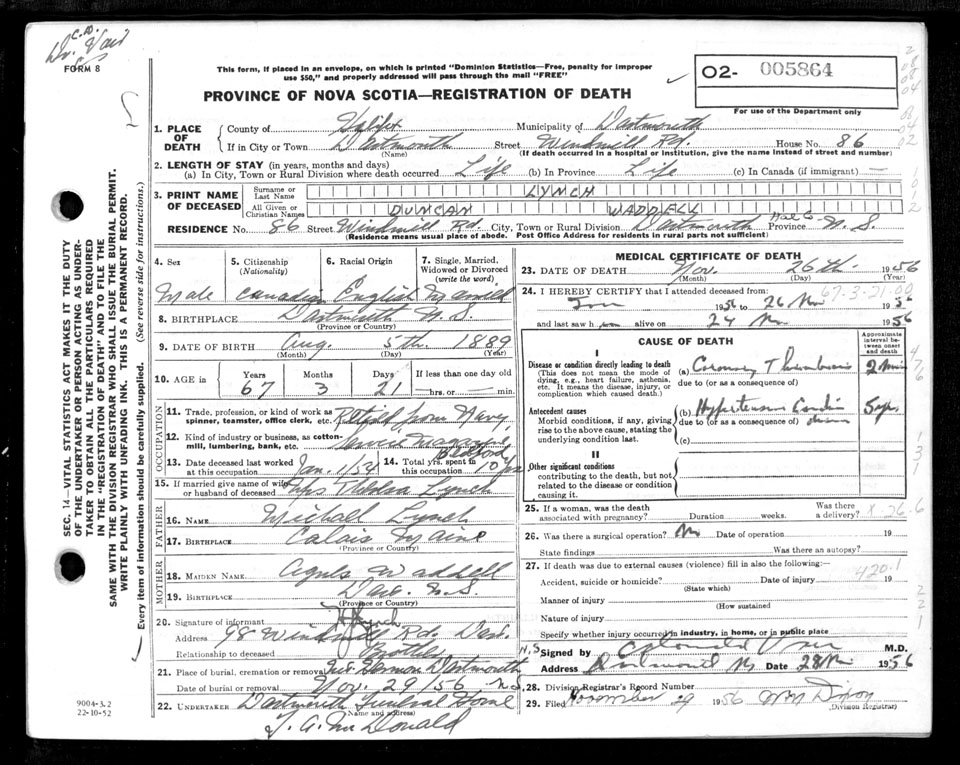 C.D.
Dr. Vair
FORM 8
This form, if placed in an envelope, on which is printed "Dominion Statistics—Free, penalty for improper
use $50," and properly addressed will pass through the mail "FREE"
02- 005864
PROVINCE OF NOVA SCOTIA—REGISTRATION OF DEATH
For use of the Department only
1. PLACE OF DEATH
County of Halifx Municipality of Dartmouth
If in City or Town Dartmouth Street Windmill Rd. House No. 86
(Name) (If death occurred in a hospital or institution, give the name instead of street and number)
2. LENGTH OF STAY (in years, months and days)
(a) In City, Town or Rural Division where death occurred Life (b) In Province Life (c) In Canada (if immigrant) —
3. PRINT NAME OF DECEASED
Surname or Last Name LYNCH
All Given or Christian Names DUNCAN WADDELL
RESIDENCE No. 86 Street Windmill Rd. City, Town or Rural Division Dartmouth Province N.S.
(Residence means usual place of abode. Post Office Address for residents in rural parts not sufficient)
4. Sex
Male
5. Citizenship
(Nationality)
Canadian
6. Racial Origin
English
7. Single, Married,
Widowed or Divorced
(write the word)
Married
8. BIRTHPLACE Dartmouth N.S.
(Province or Country)
9. DATE OF BIRTH Aug. 5th. 1889
(Month) (Day) (Year)
10. AGE in Years Months Days If less than one day
67 3 21 hrs. or min.
OCCUPATION
11. Trade, profession, or kind of work as
spinner, teamster, office clerk, etc. Retired from Navy
12. Kind of industry or business, as cotton-
mill, lumbering, bank, etc. Service Magazine
Bedford
13. Date deceased last worked
at this occupation Jan. 1/54
14. Total yrs. spent in
this occupation 10 yrs
15. If married give name of wife
or husband of deceased Mrs Thelma Lynch
FATHER
16. NAME Michael Lynch
17. BIRTHPLACE Calais Maine
(Province or Country)
MOTHER
18. MAIDEN NAME Agnes Waddell
19. BIRTHPLACE Dart. N.S.
(Province or Country)
20. Signature of informant Lynch
Address 98 Windmill Rd. Dart. N.S.
Relationship to deceased Brother
21. Place of burial, cremation or removal Mt. Hermon Dartmouth
Date of burial or removal Nov. 29/56 N.S.
22. UNDERTAKER Dartmouth Funeral Home
(Name and address)
J. A. McDonald
MEDICAL CERTIFICATE OF DEATH
23. DATE OF DEATH Nov. 26th. 1956
(Month) (Day) (Year)
24. I HEREBY CERTIFY that I attended deceased from:
67-3-21-00
1956 to 26 Nov 1956
and last saw h alive on 24 Nov 1956
CAUSE OF DEATH
Approximate interval between onset and death
I
Disease or condition directly leading to death
(This does not mean the mode of
dying, e.g., heart failure, asthenia,
etc. It means the disease, injury, or
complication which caused death.)
(a) Coronary Thrombosis
due to (or as a consequence of)
Antecedent causes
Morbid conditions, if any, giving
rise to the above cause, stating the
underlying condition last.
(b) Hypertensive Cardiac 5 yrs
due to (or as a consequence of) disease
(c)
II
Other significant conditions
contributing to the death, but not
related to the disease or condition
causing it.
25. If a woman, was the death
associated with pregnancy? Duration weeks. Was there
a delivery?
X-26-6
26. Was there a surgical operation? No Date of operation 19
State findings Was there an autopsy?
27. If death was due to external causes (violence) fill in also the following:—
420.1
Accident, suicide or homicide? Date of injury 19
(State which)
Manner of injury
(How sustained)
Nature of injury
Specify whether injury occurred in industry, in home, or in public place
Signed by M.D.
Address Dartmouth NS Date 28 Nov 1956
28. Division Registrar's Record Number
29. Filed November 29 1956 Wm Dixon
(Division Registrar)
SEC. 14—VITAL STATISTICS ACT MAKES IT THE DUTY
OF THE UNDERTAKER OR PERSON ACTING AS UNDER-
TAKER TO OBTAIN ALL THE PARTICULARS REQUIRED
IN THE "REGISTRATION OF DEATH" AND TO FILE THE
SAME WITH THE DIVISION REGISTRAR WHO SHALL ISSUE THE BURIAL PERMIT.
WRITE PLAINLY WITH UNFADING INK. THIS IS A PERMANENT RECORD.
Every item of information should be carefully supplied. (See reverse side for instructions.)
9004-3.2
22-10-52